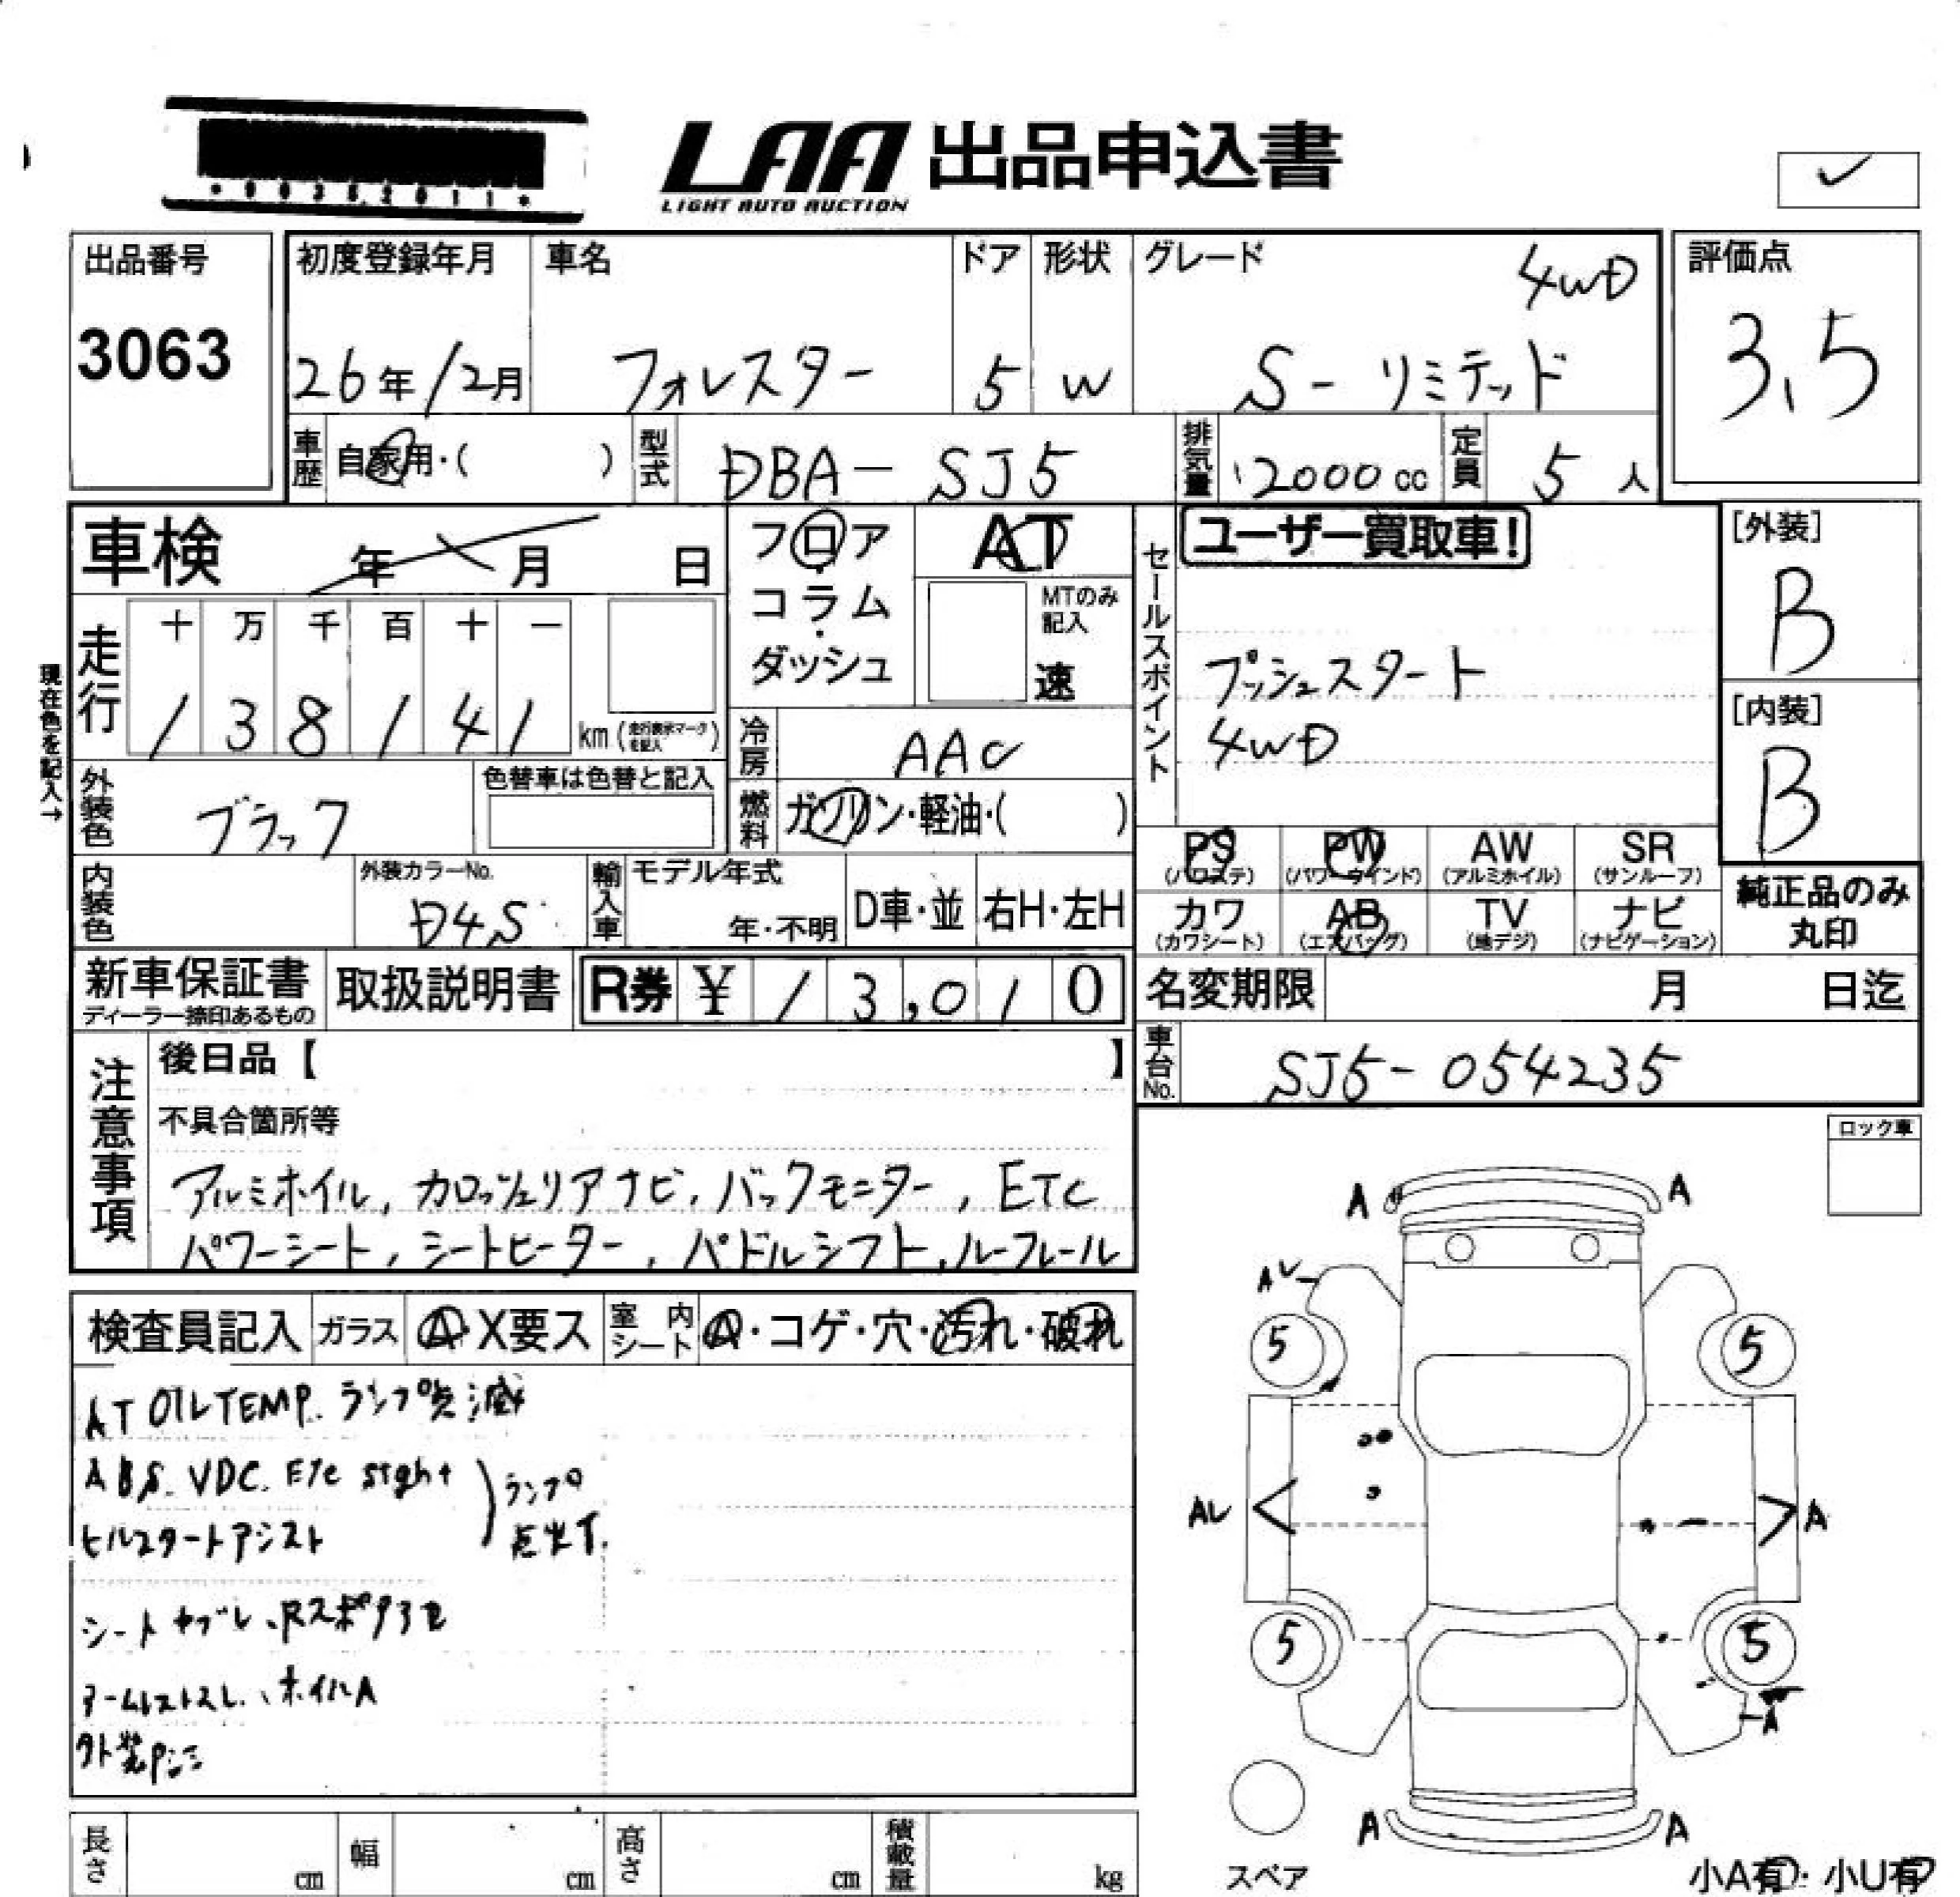 LAA 出品申込書
LIGHT AUTO AUCTION
出品番号
3063
初度登録年月
26年12月
車名
フォレスター
ドア
5
形状
W
グレード
4WD
S-リミテッド
評価点
3.5
車歴 自家用・( )
型式 DBA-SJ5
排気量 2000cc
定員 5人
車検 年 月 日
走行
十 万 千 百 十 一
1 3 8 1 4 1 km(走行表示マークを記入)
現在色を記入→
フロア・コラム・ダッシュ
AT
MTのみ記入
速
冷房 AAC
燃料 ガソリン・軽油・( )
セールスポイント
ユーザー買取車!
プッシュスタート
4WD
[外装]
B
[内装]
B
外装色 ブラック
色替車は色替と記入
内装色
外装カラーNo.
D4S
輸入車
モデル年式
年・不明
D車・並
右H・左H
PS (パワステ)
PW (パワーウインド)
AW (アルミホイル)
SR (サンルーフ)
カワ (カワシート)
AB (エアバッグ)
TV (地デジ)
ナビ (ナビゲーション)
純正品のみ
丸印
新車保証書
ディーラー捺印あるもの
取扱説明書
R券 ¥13,010
名変期限 月 日迄
車台No. SJ5-054235
注意事項
後日品【 】
不具合箇所等
アルミホイル, カロッツェリアナビ, バックモニター, ETC
パワーシート, シートヒーター, パドルシフト, ルーフレール
ロック車
検査員記入
ガラス A・X要ス
室内シート A・コゲ・穴・汚れ・破れ
AT OIL TEMP. ランプ点滅
ABS. VDC. Eye sight
ヒルスタートアシスト
ランプ
点灯
シートヤブレ、Rスポ
アームレストスレ、ホイルA
外装
A A
5 5
A
5 5
A
A A
スペア
小A有・小U有
長さ cm
幅 cm
高さ cm
積載量 kg